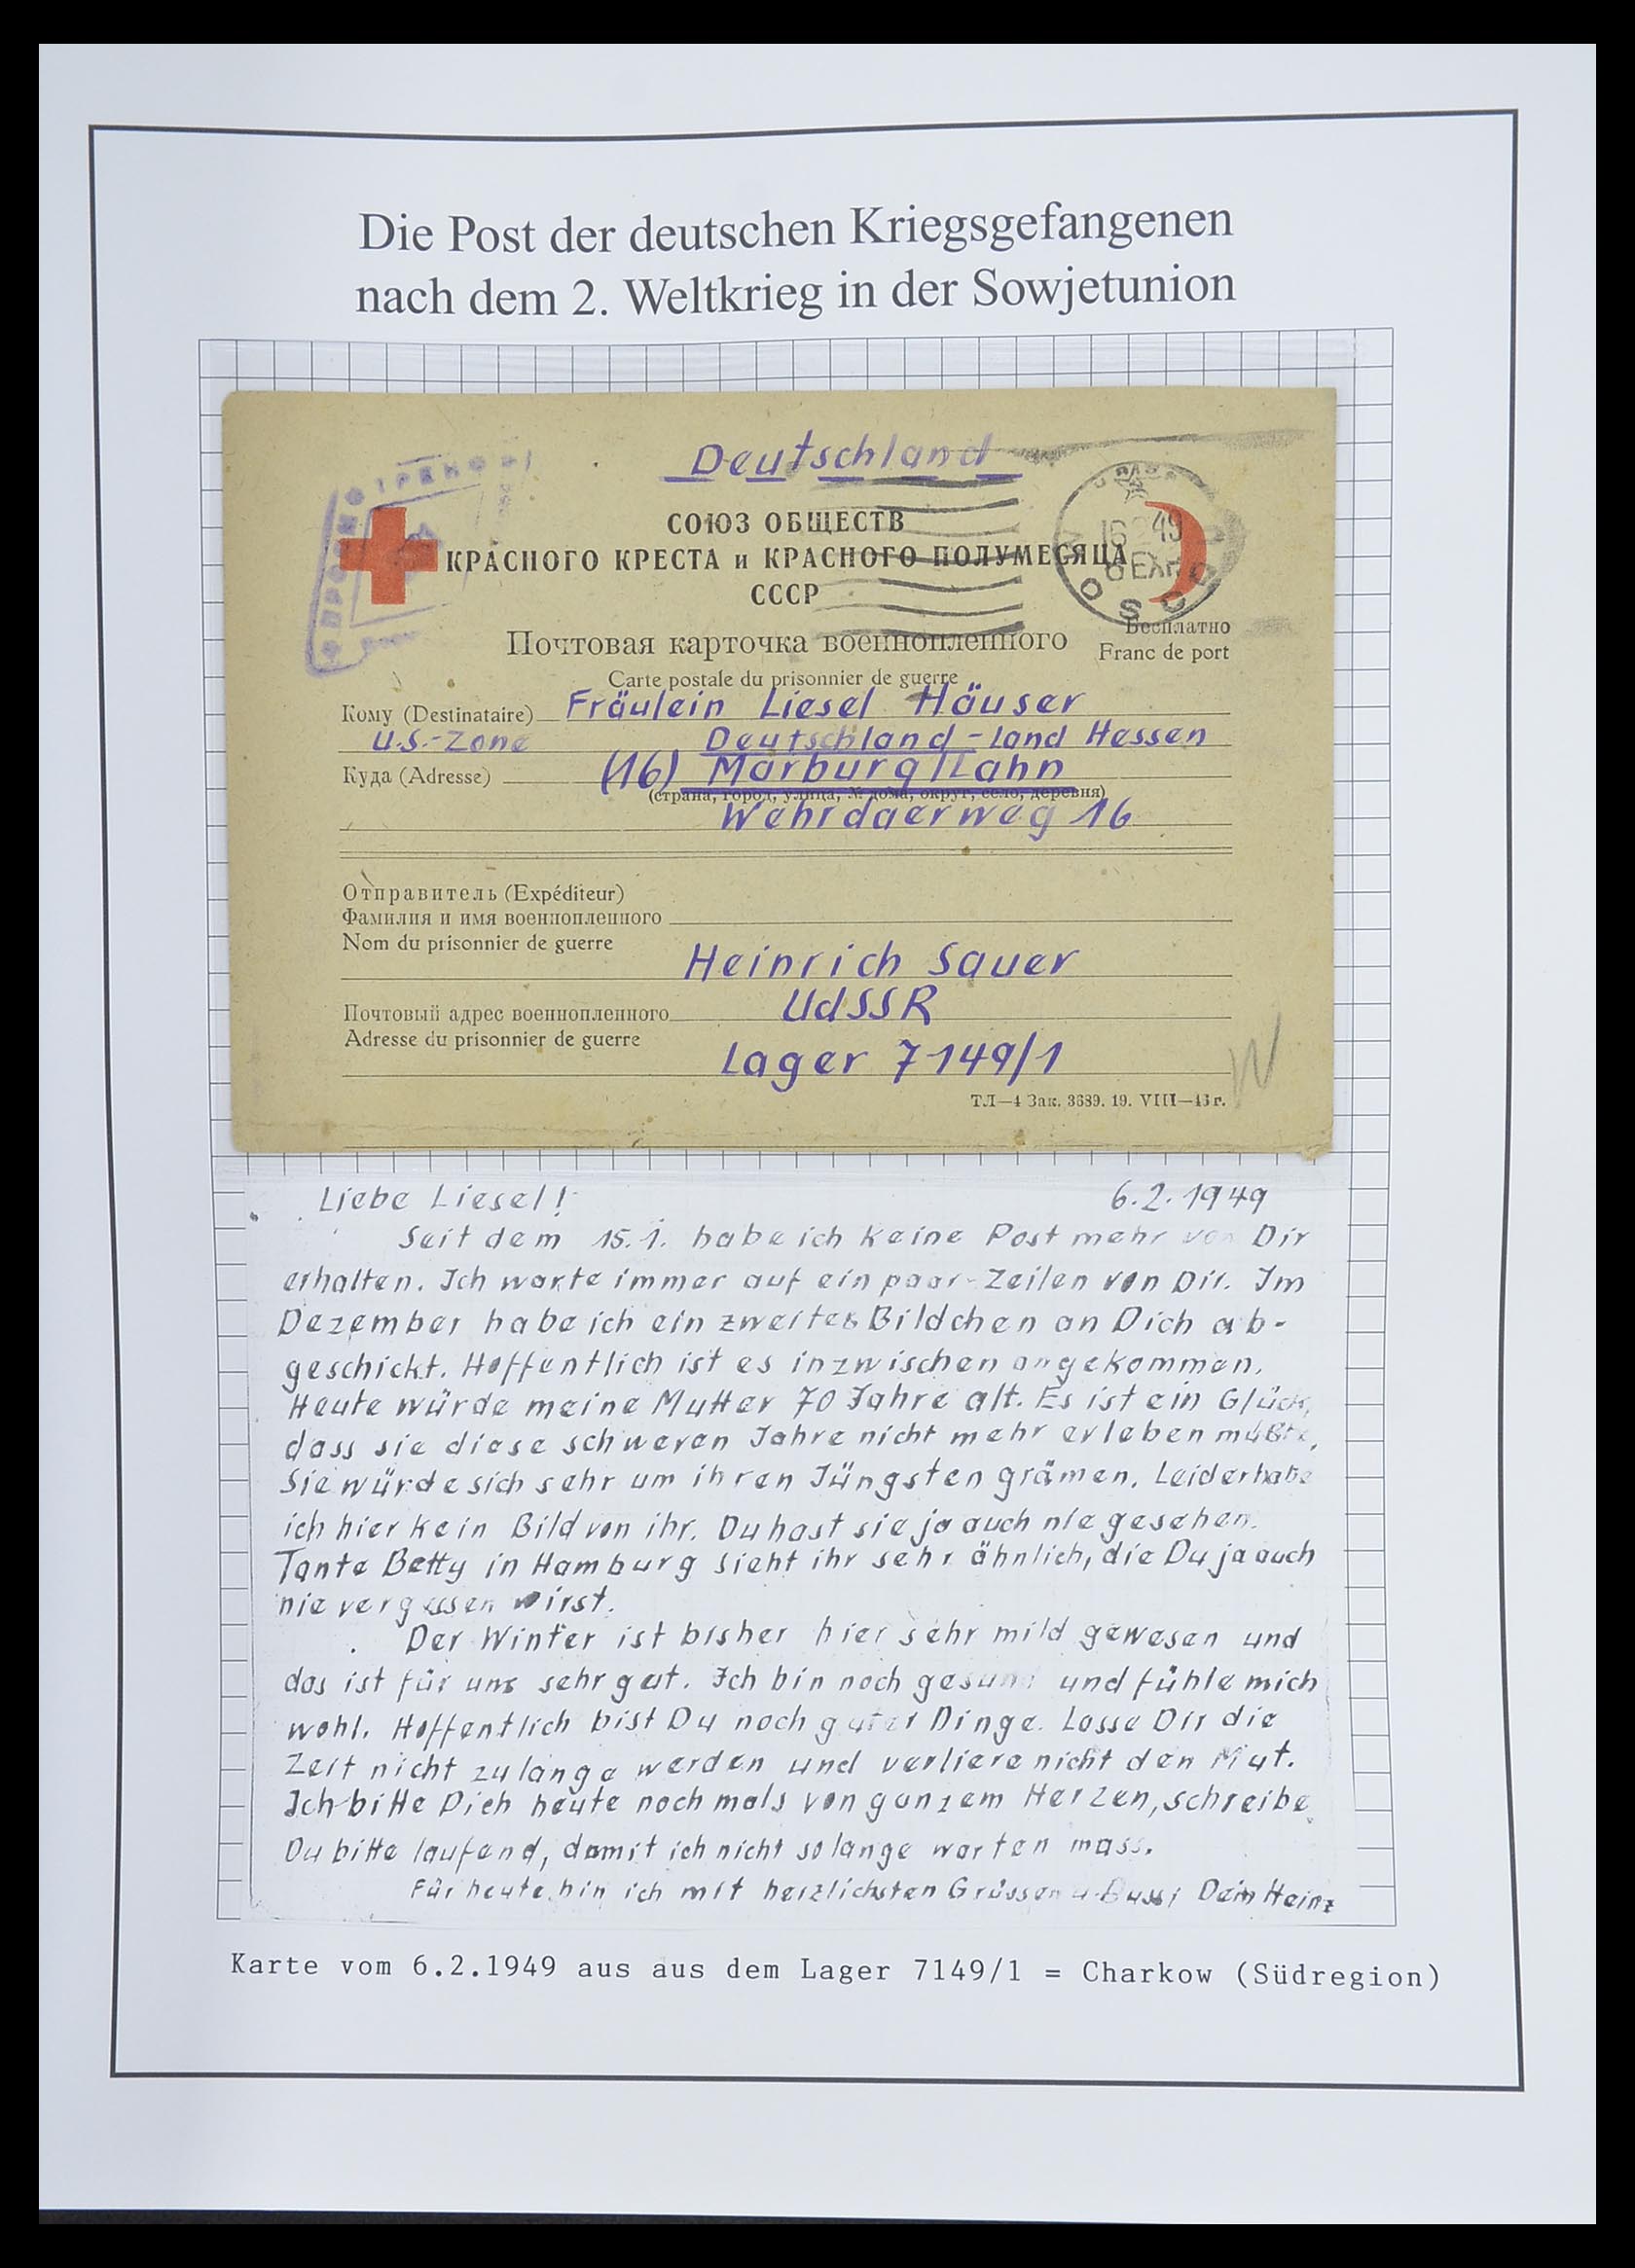 Die Post der deutschen Kriegsgefangenen
nach dem 2. Weltkrieg in der Sowjetunion
Deutschland
16 2 49
СОЮЗ ОБЩЕСТВ
КРАСНОГО КРЕСТА и КРАСНОГО ПОЛУМЕСЯЦА
СССР
Почтовая карточка военнопленного
Бесплатно
Franc de port
Carte postale du prisonnier de guerre
Кому (Destinataire) Fräulein Liesel Häuser
U.S.-Zone Deutschland-Land Hessen
Куда (Adresse) (16) Marburg/Lahn
(страна, город, улица, № дома, округ, село, деревня)
Wehrdaerweg 16
Отправитель (Expéditeur)
Фамилия и имя военнопленного
Nom du prisonnier de guerre
Heinrich Sauer
Почтовый адрес военнопленного UdSSR
Adresse du prisonnier de guerre
Lager 7149/1
W
ТЛ—4 Зак. 3689. 19. VIII—
Liebe Liesel! 6.2.1949
Seit dem 15.1. habe ich keine Post mehr von Dir
erhalten. Ich warte immer auf ein paar Zeilen von Dir. Im
Dezember habe ich ein zweites Bildchen an Dich ab-
geschickt. Hoffentlich ist es inzwischen angekommen.
Heute würde meine Mutter 70 Jahre alt. Es ist ein Glück,
dass sie diese schweren Jahre nicht mehr erleben mußte.
Sie würde sich sehr um ihren Jüngsten grämen. Leider habe
ich hier kein Bild von ihr. Du hast sie ja auch nie gesehen.
Tante Betty in Hamburg sieht ihr sehr ähnlich, die Du ja auch
nie vergessen wirst.
Der Winter ist bisher hier sehr mild gewesen und
das ist für uns sehr gut. Ich bin noch gesund und fühle mich
wohl. Hoffentlich bist Du noch guter Dinge. Lasse Dir die
Zeit nicht zu lange werden und verliere nicht den Mut.
Ich bitte Dich heute nochmals von ganzem Herzen, schreibe
Du bitte laufend, damit ich nicht so lange warten muss.
Für heute bin ich mit herzlichsten Grüssen u. Bussi Dein Heinz
Karte vom 6.2.1949 aus aus dem Lager 7149/1 = Charkow (Südregion)